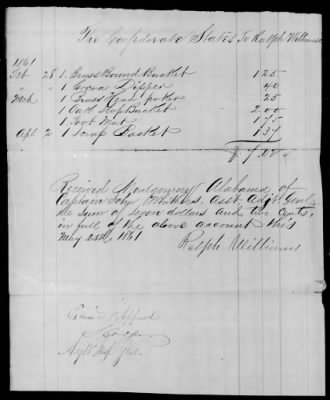 The Confederate States To Ralph Williams
1861
Feb 28 1 Brass Bound Bucket 1 25
" " 1 Cocoa Dipper 40
Mch 1 Brass 25
1 Oak Bucket 2 00
1 Foot Mat 1 75
Apl 2 1 1 37
$ 7.02
Received Montgomery Alabama, of
Captain John Withers, Asst Adjt Genl.
the sum of seven dollars and two Cents,
in full of the above account this
May 25th, 1861
Ralph Williams
Approved
S Cooper
Adjt Genl